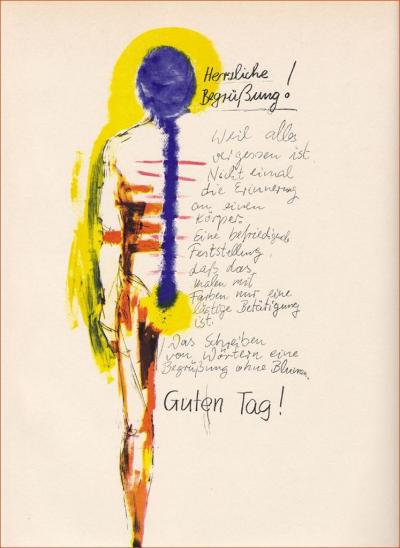 Herrliche
Begrüßung!
Weil alles
vergessen ist.
Nicht einmal
die Erinnerung
an einen
Körper.
Eine befriedigende
Feststellung,
daß das
malen mit
Farben nur eine
lästige Betätigung
ist.
Das Schreiben
von Wörtern eine
Begrüßung ohne Blumen.
Guten Tag!